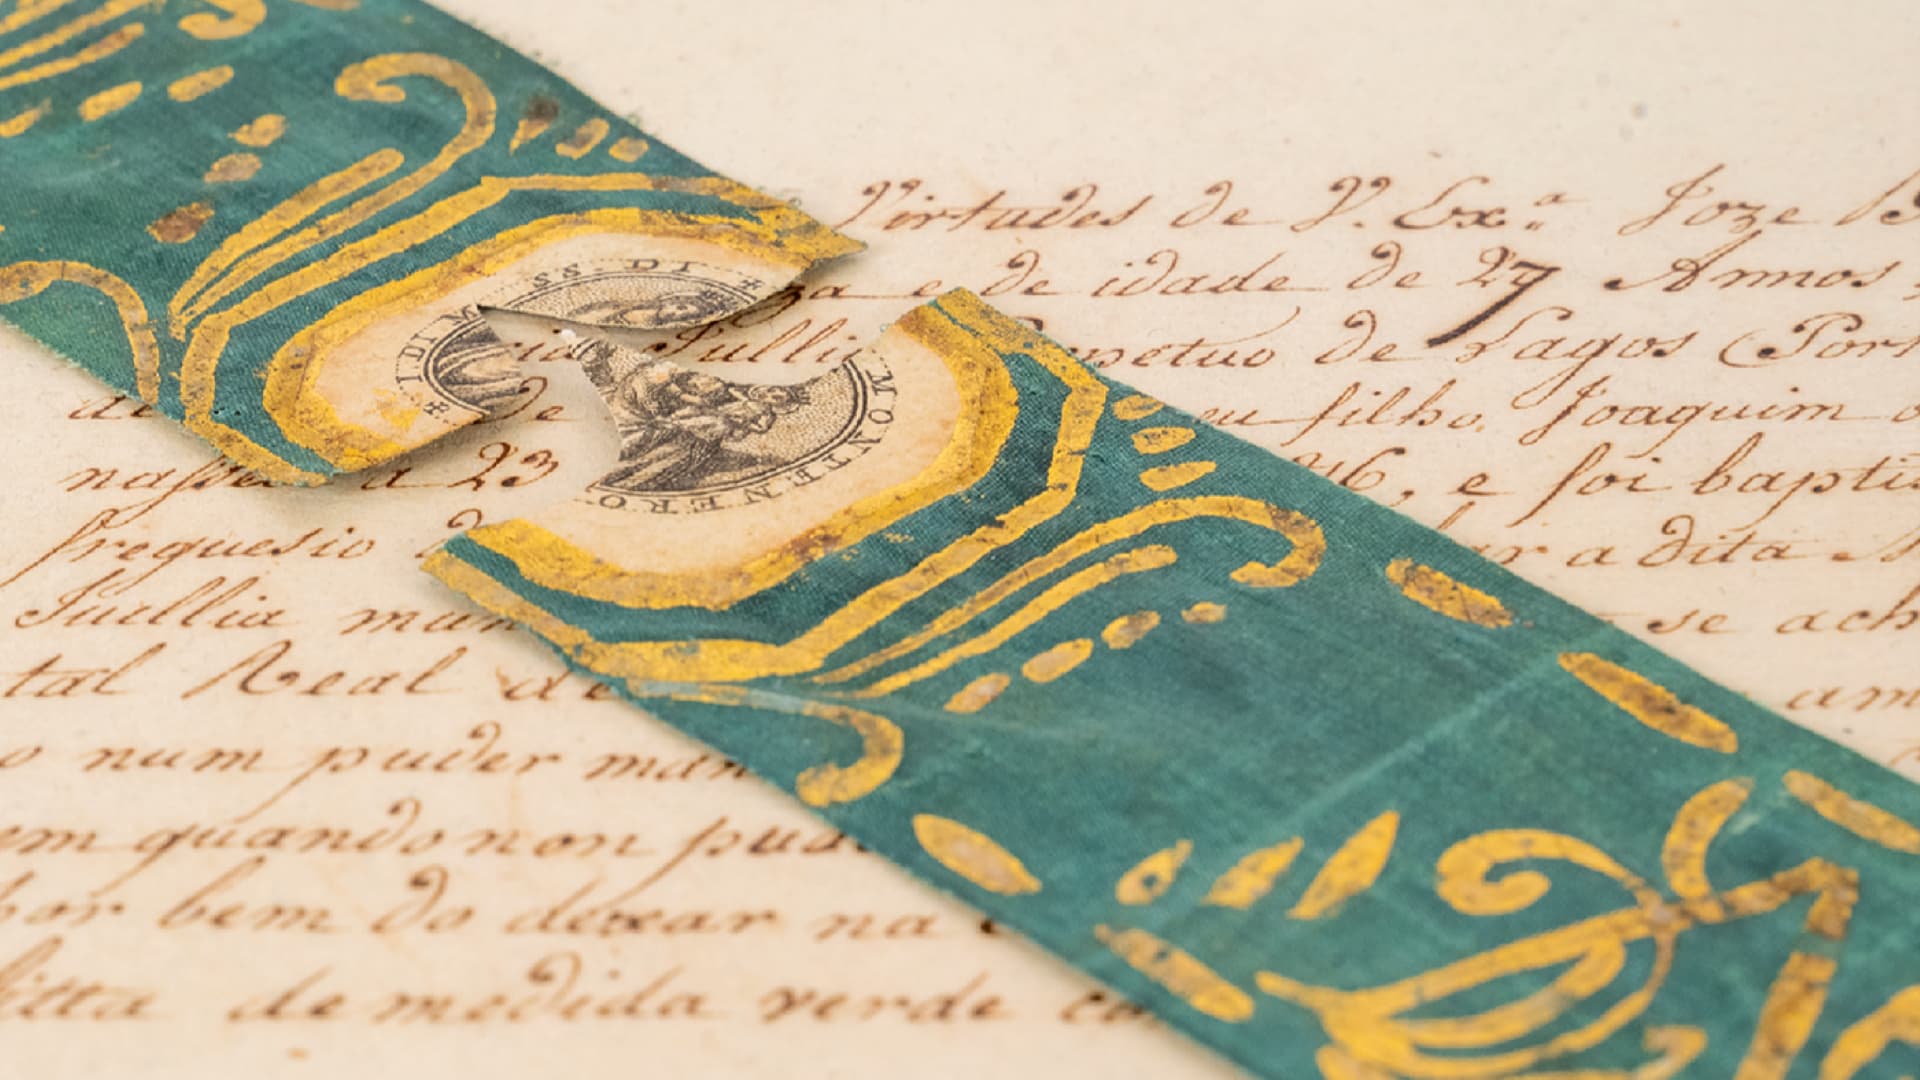 Virtudes de V. Exª Joze B
za e de idade de 27 Annos
cia Jullia Perpetuo de Lagos (Port
de De eu filho Joaquim
nasseo a 23 76, e foi baptis
freguesio ar a dita
Jullia mun se ach
tal Real de am
o num puder man
em quando non pud
por bem do dexar na
fitta de medida verde co
SS. DI
I DI M
MONTENERO